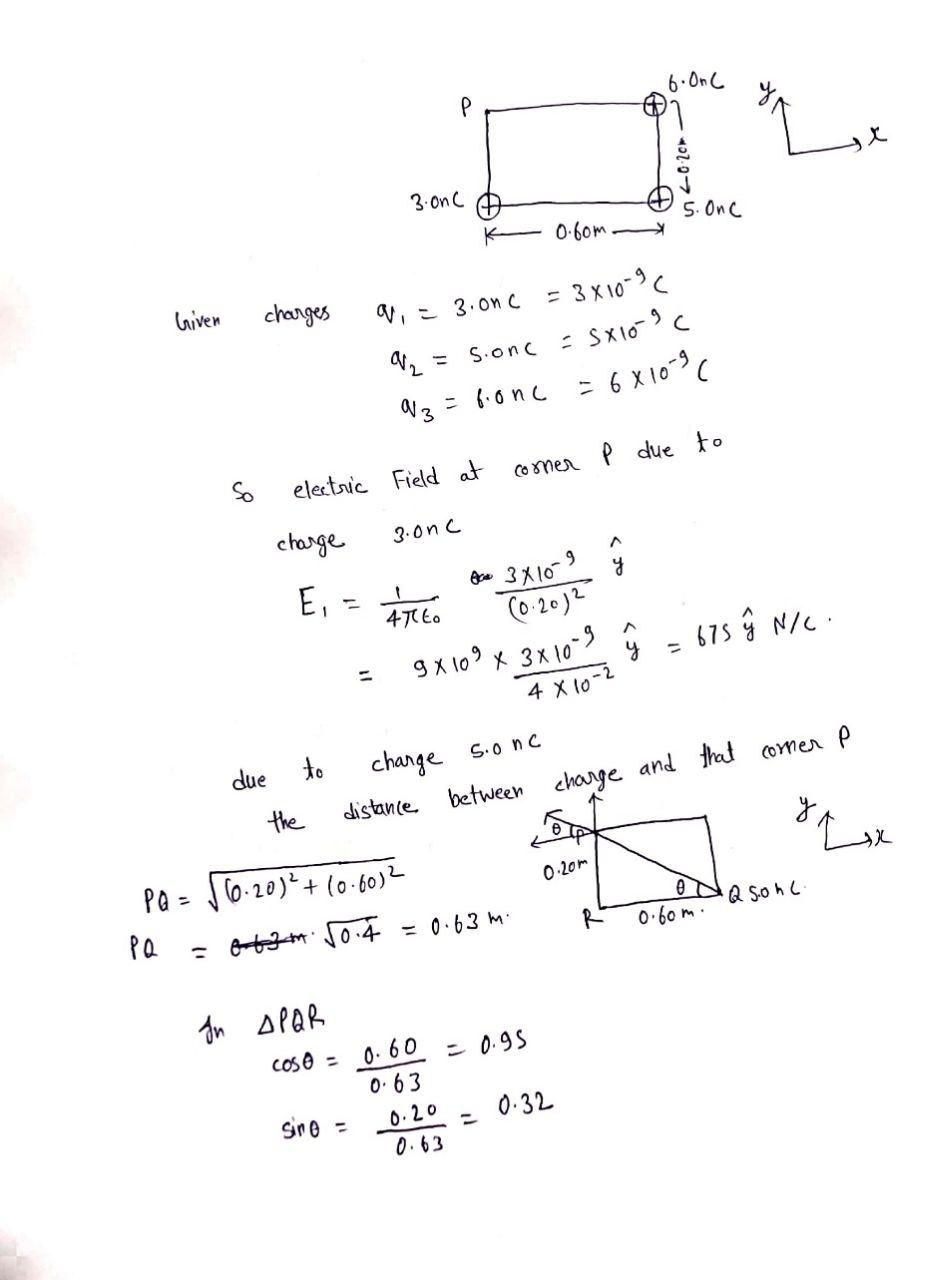 6.0nC
P
y
x
0.20m
3.0nC
5.0nC
0.60m
Given charges q₁ = 3.0nC = 3×10⁻⁹ C
q₂ = 5.0nC = 5×10⁻⁹ C
q₃ = 6.0nC = 6×10⁻⁹ C
So electric Field at corner P due to
charge 3.0nC
E₁ = 1/4πε₀ 3×10⁻⁹/(0.20)² ŷ
= 9×10⁹ × 3×10⁻⁹/4×10⁻² ŷ = 675 ŷ N/C.
due to charge 5.0nC
the distance between charge and that corner P
y
x
θ
P
0.20m
θ
Q 5.0nC.
R
0.60m.
PQ = √(0.20)² + (0.60)²
PQ = 0.63m. √0.4 = 0.63 m.
In ΔPQR
cosθ = 0.60/0.63 = 0.95
sinθ = 0.20/0.63 = 0.32